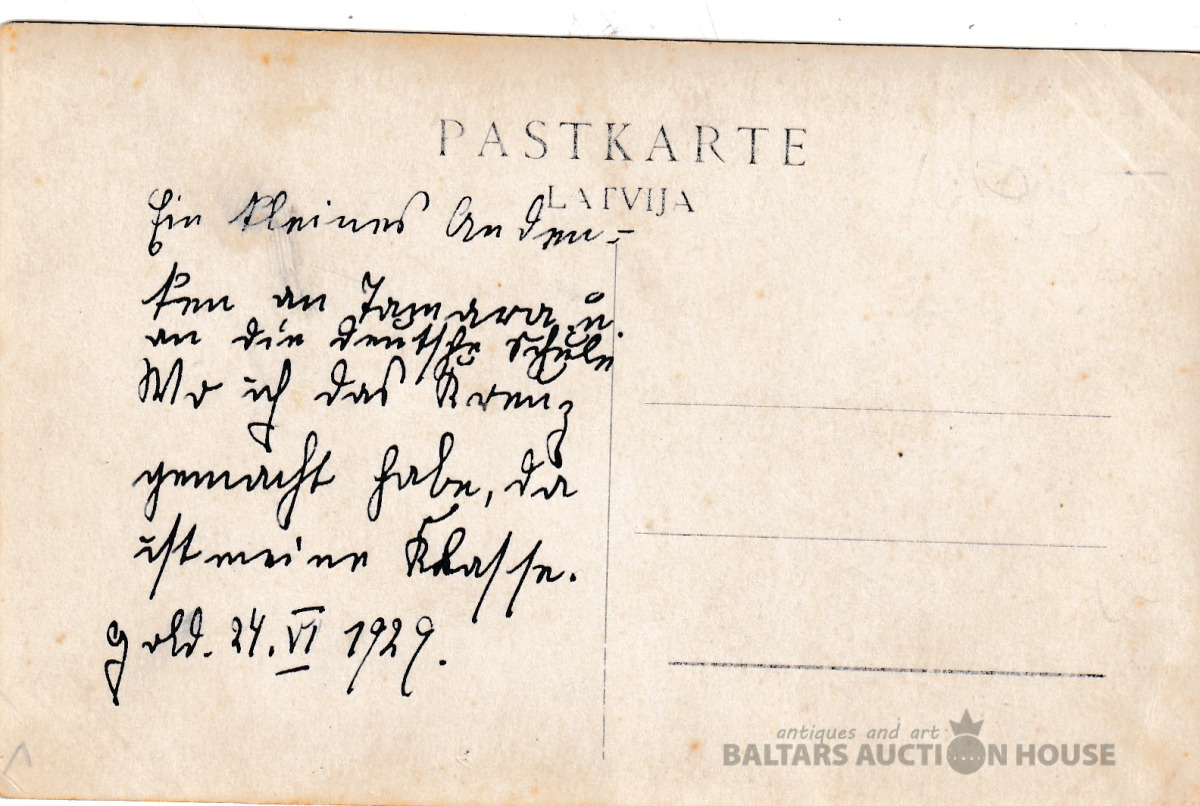 PASTKARTE
LATVIJA
Ein kleines Anden-
ken an Tamara u.
an die deutsche Schule
Wo ich das Kreuz
gemacht habe, da
ist meine Klasse.
Gold. 24. VI 1929.
antiques and art
BALTARS AUCTION HOUSE